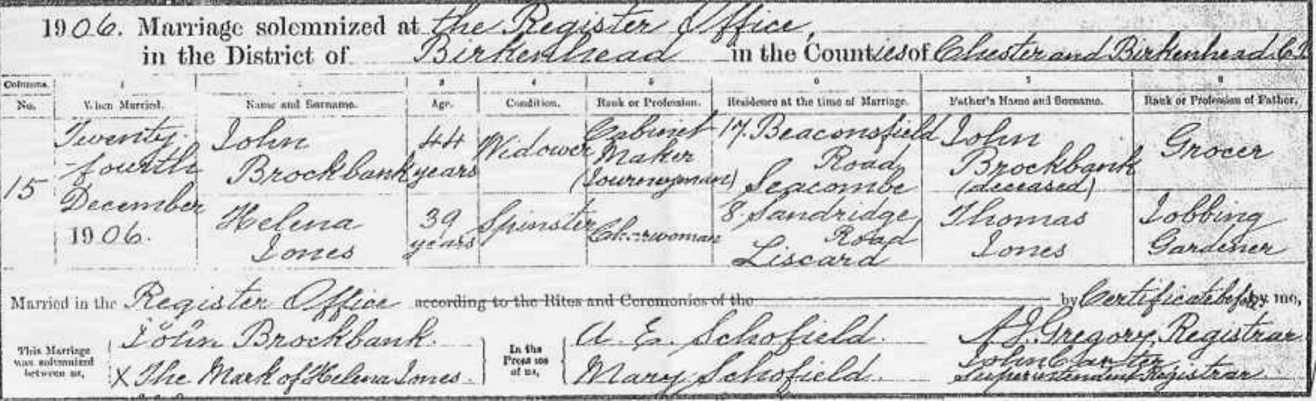 1906. Marriage solemnized at the Register Office,
in the District of Birkenhead in the Counties of Chester and Birkenhead C.B.
Columns. 1 2 3 4 5 6 7 8
No. When Married. Name and Surname. Age. Condition. Rank or Profession. Residence at the time of Marriage. Father's Name and Surname. Rank or Profession of Father.
15
Twenty-
fourth
December
1906.
John
Brockbank
44
years
Widower
Cabinet
Maker
(Journeyman)
17. Beaconsfield
Road
Seacombe
John
Brockbank
(deceased)
Grocer
Helena
Jones
39
years
Spinster
Charwoman
8 Sandridge
Road
Liscard
Thomas
Jones
Jobbing
Gardener
Married in the Register Office according to the Rites and Ceremonies of the by Certificate before by me,
This Marriage
was solemnized
between us,
John Brockbank.
X The Mark of Helena Jones.
In the
Presence
of us,
A. E. Schofield.
Mary Schofield.
A J. Gregory, Registrar
John
Superintendent Registrar